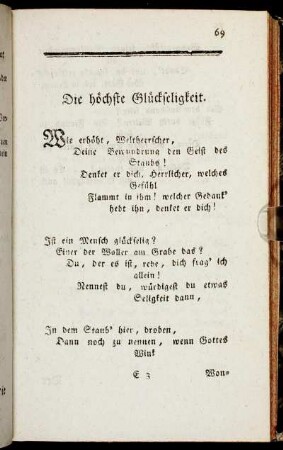 69
Die höchste Glückseligkeit.
Wie erhöht, Weltherrscher,
Deine Bewundrung den Geist des
Staubs!
Denket er dich, Herrlicher, welches
Gefühl
Flammt in ihm! welcher Gedank'
hebt ihn, denket er dich!
Ist ein Mensch glückselig?
Einer der Waller am Grabe das?
Du, der es ist, rede, dich frag' ich
allein!
Nennest du, würdigest du etwas
Seligkeit dann,
In dem Staub' hier, droben,
Dann noch zu nennen, wenn Gottes
Wink
E 3 Won-